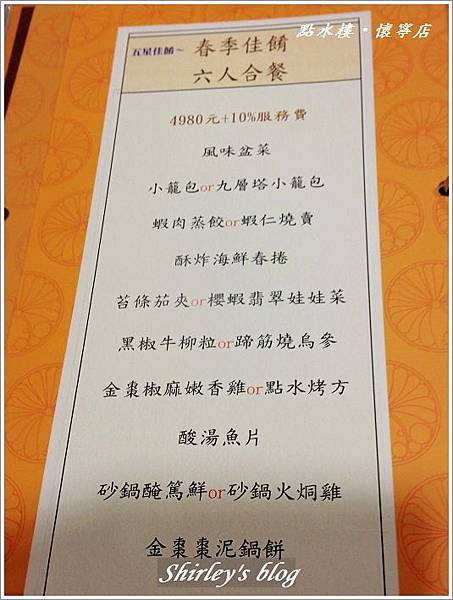 點水樓‧懷寧店
五星佳餚~ 春季佳餚
六人合餐
4980元+10%服務費
風味盆菜
小籠包or九層塔小籠包
蝦肉蒸餃or蝦仁燒賣
酥炸海鮮春捲
苔條茄夾or櫻蝦翡翠娃娃菜
黑椒牛柳粒or蹄筋燒烏參
金棗椒麻嫩香雞or點水烤方
酸湯魚片
砂鍋醃篤鮮or砂鍋火烔雞
金棗棗泥鍋餅
Shirley's blog